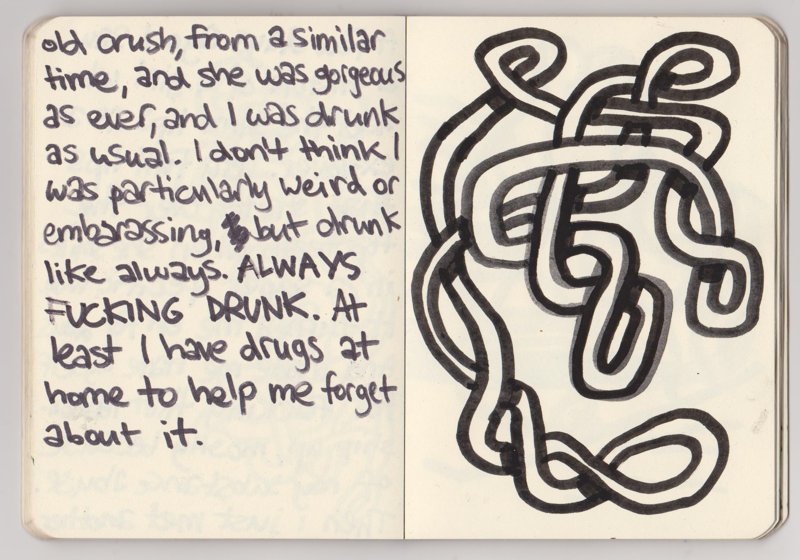 old crush, from a similar
time, and she was gorgeous
as ever, and I was drunk
as usual. I don't think I
was particularly weird or
embarassing, but drunk
like always. ALWAYS
FUCKING DRUNK. At
least I have drugs at
home to help me forget
about it.